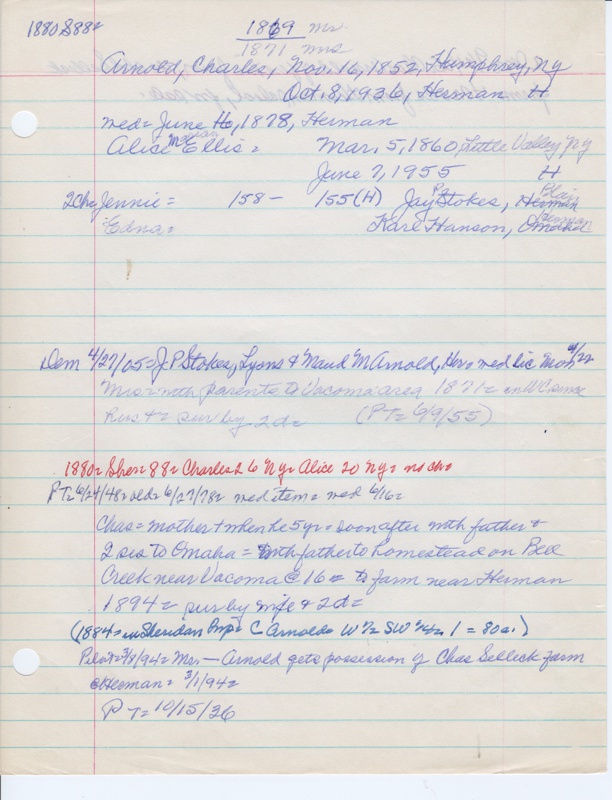 1880 S88=
1869 mr.
1871 mrs
Arnold, Charles, Nov. 16, 1852, Humphrey, Ny
Oct. 8, 1936, Herman H
med= June 16, 1878, Herman
Alice Marian Ellis= Mar. 5, 1860, Little Valley Ny
June 7, 1955 H
2ch= Jennie= 158- 155(H) Jay P Stokes, Herman Blair
Edna= Karl Hanson, Omaha Herman
Dem 4/27/05= J P Stokes, Lyons & Maud M Arnold, Her= med lic Mon 4/22
Mrs= with parents to Vacoma area 1871= in WC since
Hus += sur by 2d= (PT= 6/9/55)
1880= Sher= 88= Charles 26 Ny= Alice 20 Ny= no ch=
PT= 6/24/48= old= 6/27/78= med item= med 6/16=
Chas= mother + when he 5 yr= soon after with father &
2 sis to Omaha= with father to homestead on Bell
Creek near Vacoma @ 16= to farm near Herman
1894= sur by wife & 2d=
(1884= in Sheridan Pcp= C Arnold= W 1/2 SW 1/4 1= 80a.)
Pilot= 3/8/94= Mr. — Arnold gets possession of Chas Selleck farm
@ Herman= 3/1/94=
PT= 10/15/36